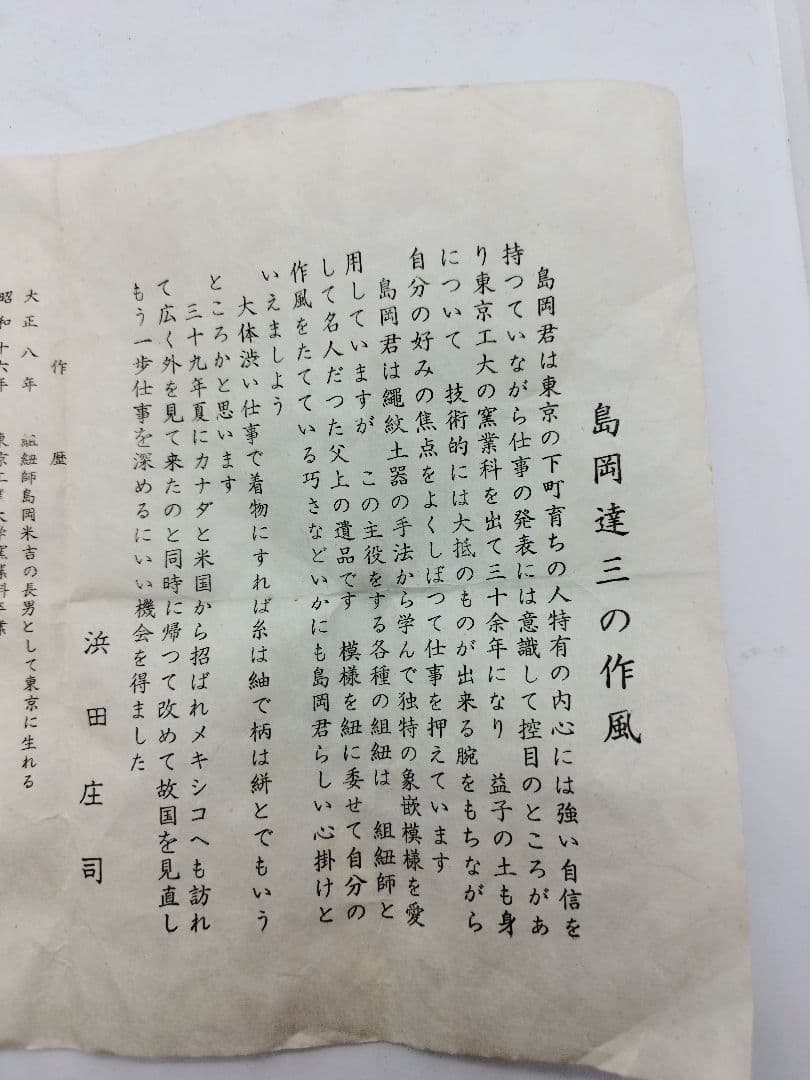 島岡達三の作風
島岡君は東京の下町育ちの人特有の内心には強い自信を
持つていながら仕事の発表には意識して控目のところがあ
り東京工大の窯業科を出て三十余年になり 益子の土も身
について 技術的には大抵のものが出来る腕をもちながら
自分の好みの焦点をよくしぼつて仕事を押えています
島岡君は縄紋土器の手法から学んで独特の象嵌模様を愛
用していますが この主役をする各種の組紐は 組紐師と
して名人だつた父上の遺品です 模様を紐に委せて自分の
作風をたてている巧さなどいかにも島岡君らしい心掛けと
いえましよう
大体渋い仕事で着物にすれば糸は紬で柄は絣とでもいう
ところかと思います
三十九年夏にカナダと米国から招ばれメキシコへも訪れ
て広く外を見て来たのと同時に帰つて改めて故国を見直し
もう一歩仕事を深めるにいい機会を得ました
浜田庄司
作歴
大正八年 組紐師島岡米吉の長男として東京に生れる
昭和十六年 東京工業大学窯業科卒業